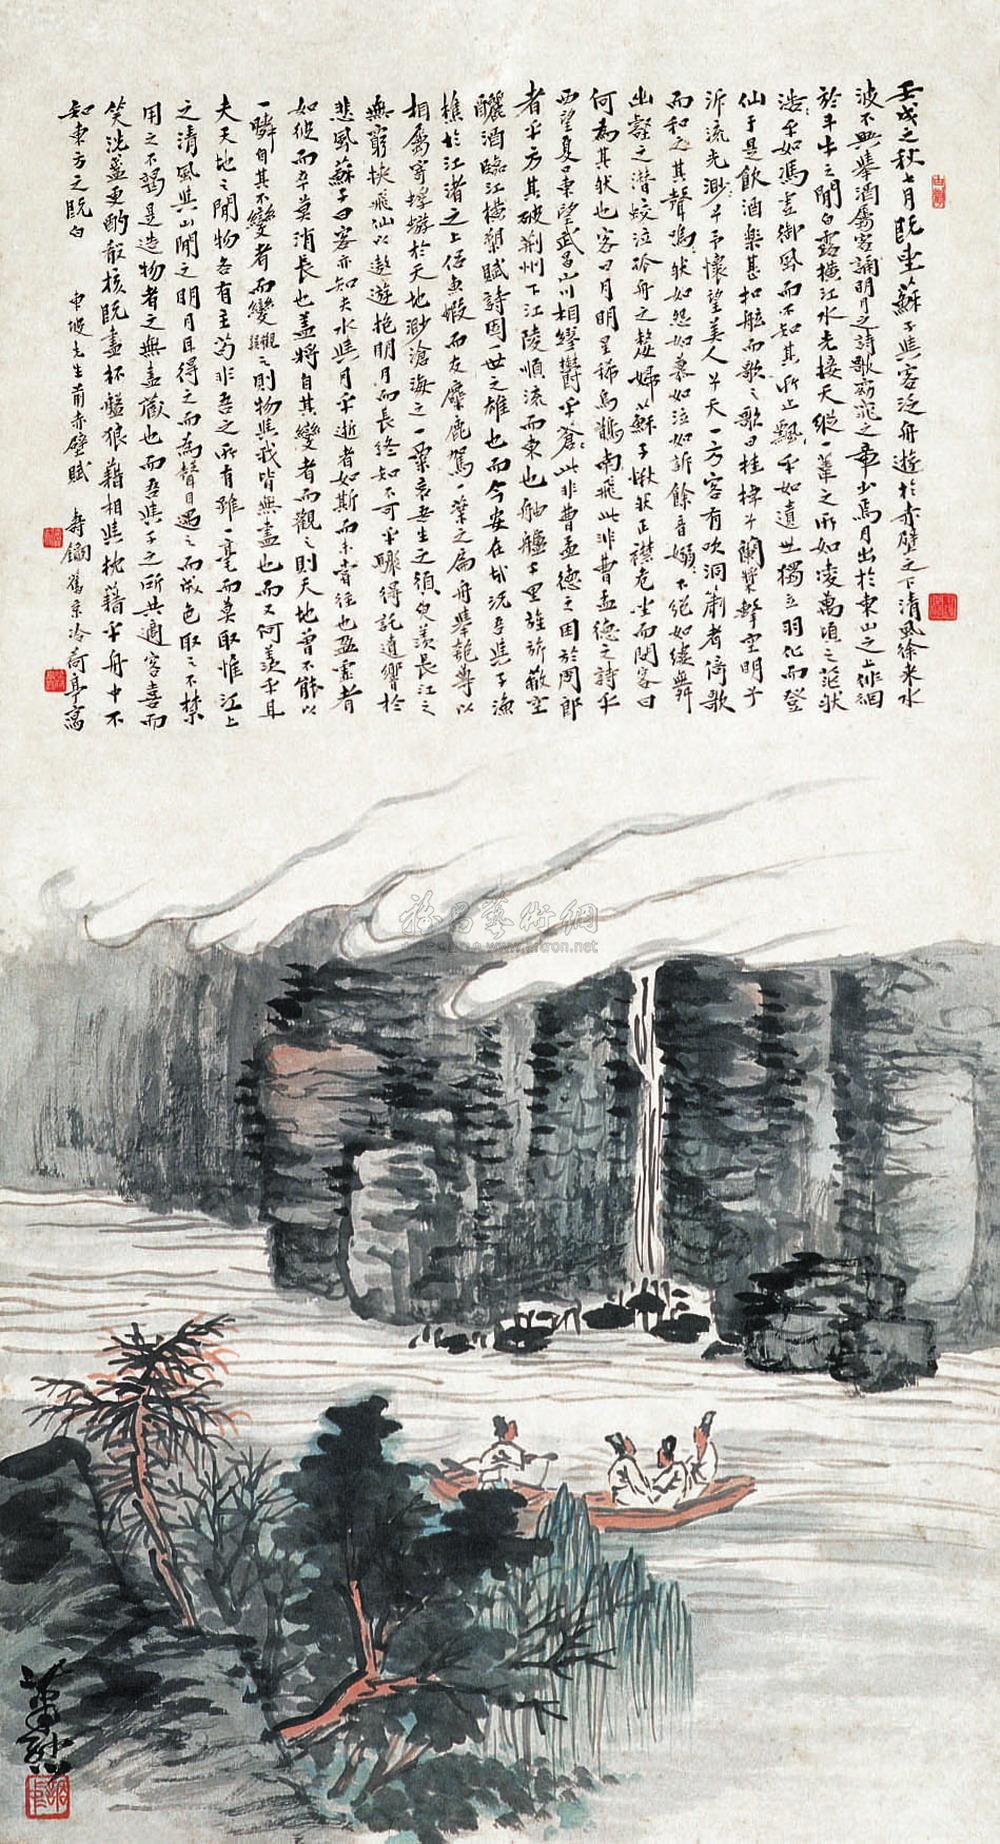 壬戌之秋七月既望蘇子與客泛舟遊於赤壁之下清風徐來水
波不興舉酒屬客誦明月之詩歌窈窕之章少焉月出於東山之上徘徊
於斗牛之間白露橫江水光接天縱一葦之所如凌萬頃之茫然
浩〻乎如馮虛御風而不知其所止飄〻乎如遺世獨立羽化而登
仙于是飲酒樂甚扣舷而歌之歌曰桂棹兮蘭槳擊空明兮
泝流光渺〻兮予懷望美人兮天一方客有吹洞簫者倚歌
而和之其聲嗚〻然如怨如慕如泣如訴餘音嫋〻不絕如縷舞
幽壑之潛蛟泣孤舟之嫠婦蘇子愀然正襟危坐而問客曰
何為其然也客曰月明星稀烏鵲南飛此非曹孟德之詩乎
西望夏口東望武昌山川相繆鬱乎蒼〻此非曹孟德之困於周郎
者乎方其破荊州下江陵順流而東也舳艫千里旌旂蔽空
釃酒臨江橫槊賦詩固一世之雄也而今安在哉況吾與子漁
樵於江渚之上侶魚蝦而友麋鹿駕一葉之扁舟舉匏尊以
相屬寄蜉蝣於天地渺滄海之一粟哀吾生之須臾羨長江之
無窮挾飛仙以遨遊抱明月而長終知不可乎驟得託遺響於
悲風蘇子曰客亦知夫水與月乎逝者如斯而未嘗往也盈虛者
如彼而卒莫消長也蓋將自其變者而觀之則天地曾不能以
一瞬自其不變者而變觀之則物與我皆無盡也而又何羨乎且
夫天地之間物各有主苟非吾之所有雖一毫而莫取惟江上
之清風與山間之明月耳得之而為聲目遇之而成色取之不禁
用之不竭是造物者之無盡藏也而吾與子之所共適客喜而
笑洗盞更酌殽核既盡杯盤狼藉相與枕藉乎舟中不
知東方之既白 東坡先生前赤壁賦 壽鑈舊京冷荷亭寫
蕭愻